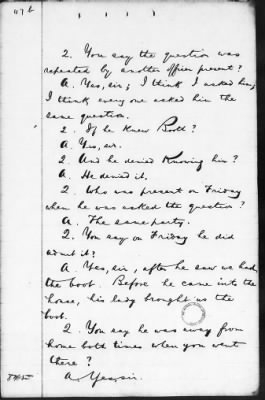 2. You say the question was
repeated by another officer present?
A. Yes, sir; I think I asked him;
I think every one asked him the
same question.
2. If he knew Booth?
A. Yes, sir.
2. And he denied knowing him?
A. He denied it.
2. Who was present on Friday
when he was asked the question?
A. The same party.
2. You say on Friday he did
admit it?
A. Yes, sir, after he saw we had
the boot. Before he came into the
house, his lady brought us the
boot.
2. You say he was away from
home both times when you went
there?
A. Yes sir.